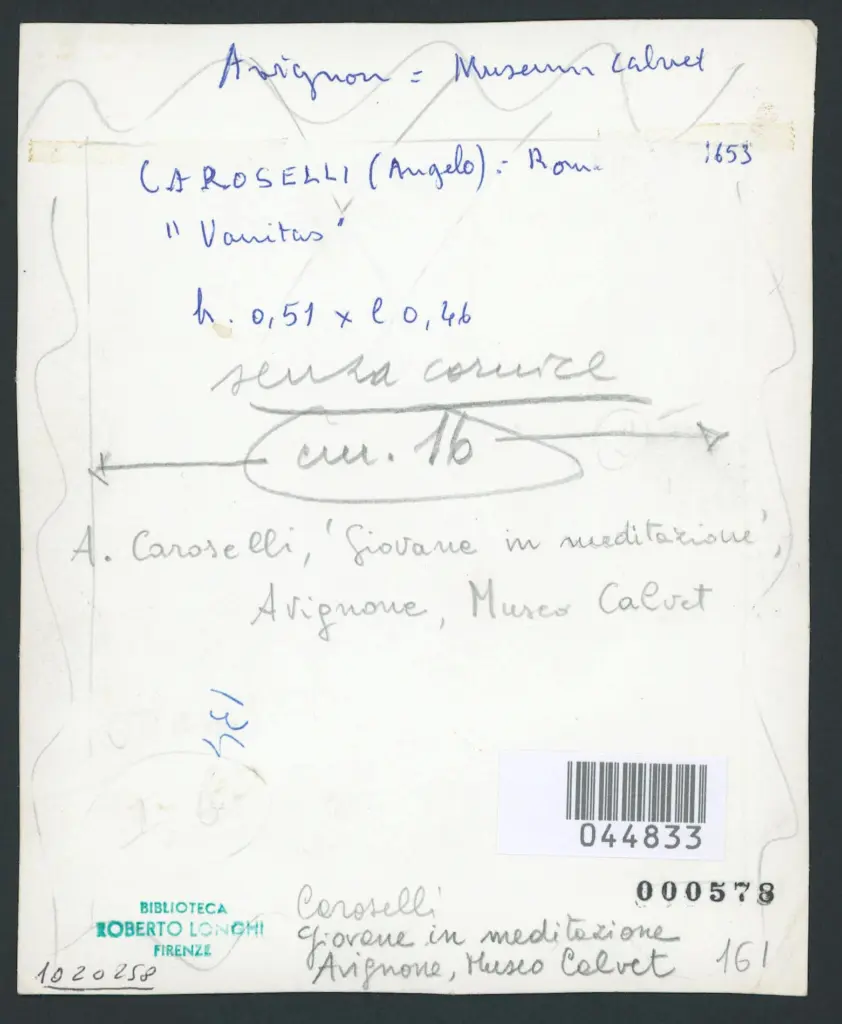 Avignon = Museum Calvet
CAROSELLI (Angelo) :- Rom. 1653
"Vanitas"
h. 0,51 x l 0,46
senza cornice
cm. 16
A. Caroselli, 'Giovane in meditazione',
Avignone, Museo Calvet
134
044833
000578
BIBLIOTECA
ROBERTO LONGHI
FIRENZE
1020258
Caroselli
Giovane in meditazione
Avignone, Museo Calvet 161